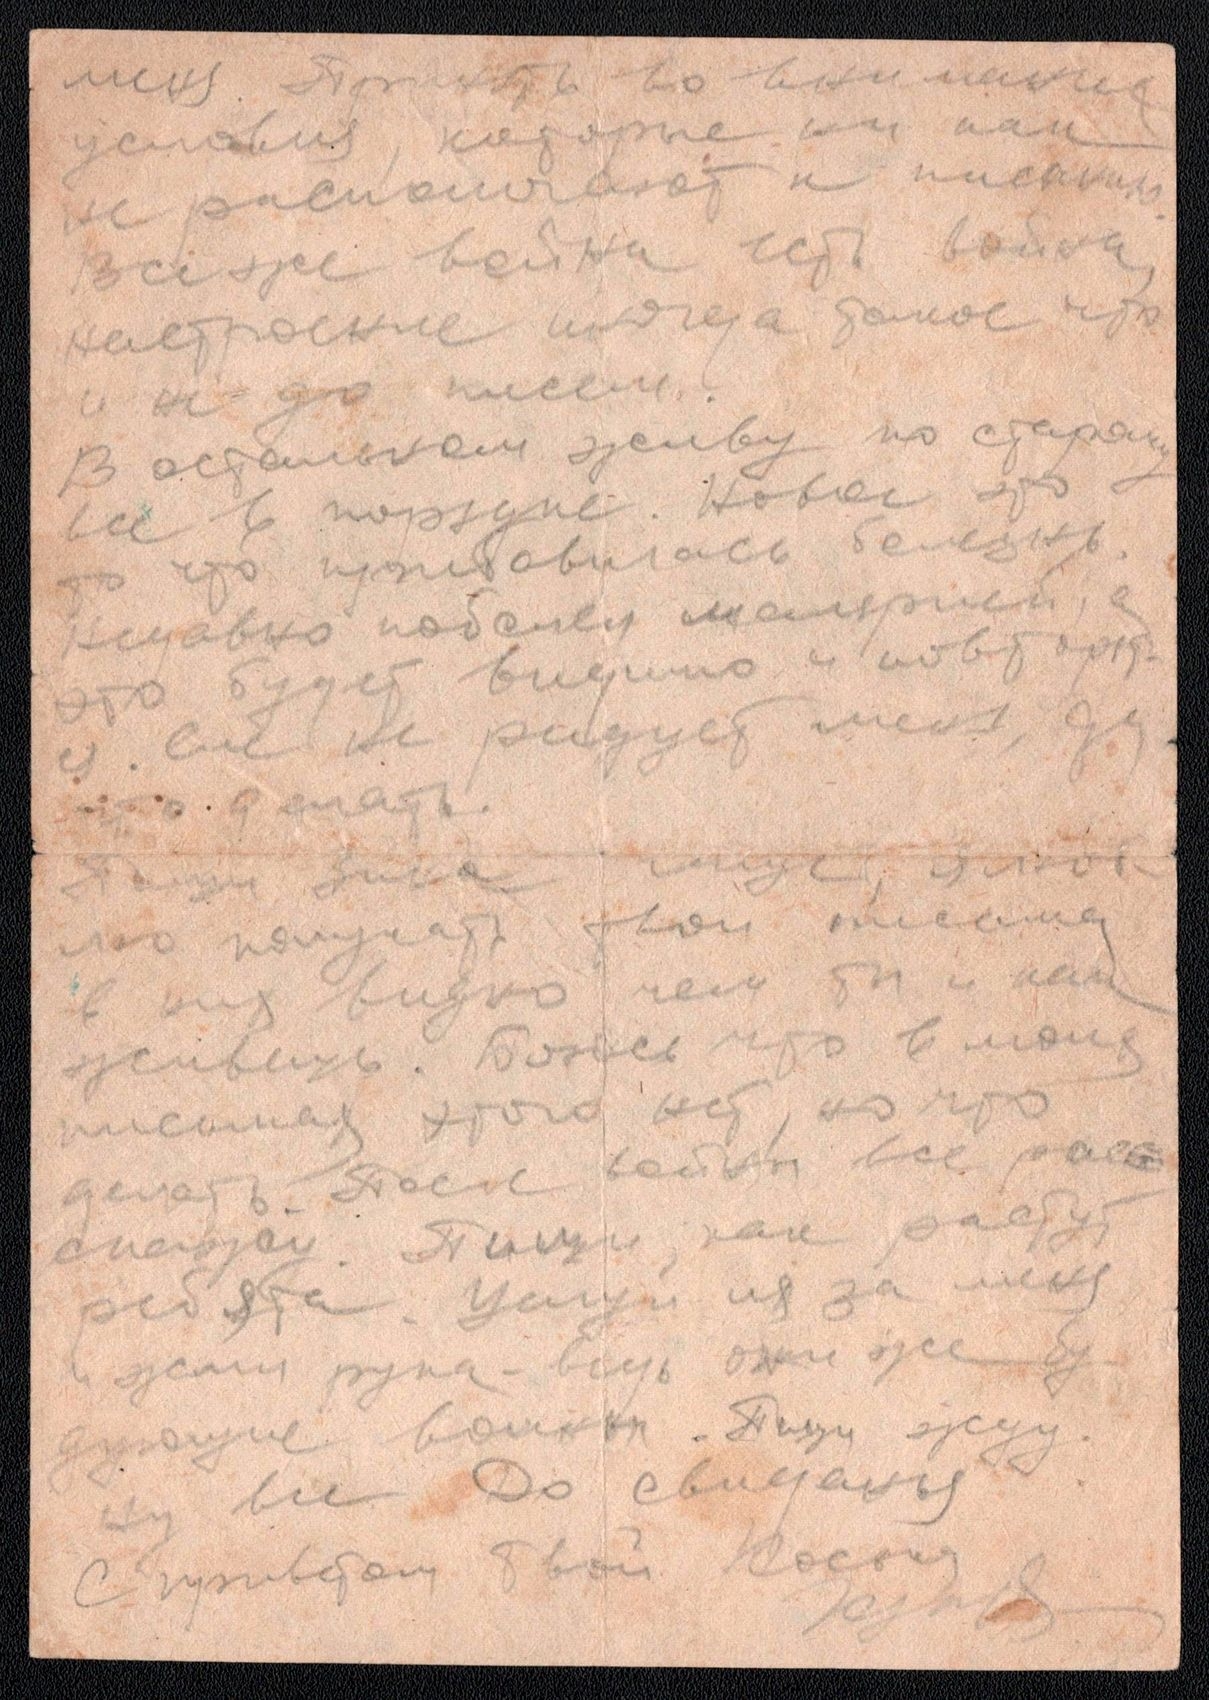 меня. Принять во внимание
условия, которые ни как
не располагают к писанию.
Все же война есть война,
настроение иногда такое что
и не до писем.
В остальном живу по старому
все в порядке. Новое это
то что прибавилась болезнь.
Недавно поболел малярией, а
это будет видимо и повторят-
ся. Сие не радует меня, да
что делать.
Пиши чаще, я люб-
лю получать твои письма
в них видно чем ты и как
живешь. Боюсь что в моих
письмах этого нет, но что
делать. После войны все рас
скажем. Пиши, как растут
ребята. Целуй их за меня
и жми рука - ведь они же бу
дующие воины. Пиши жду.
Ну все До свиданья
С приветом твой Косья